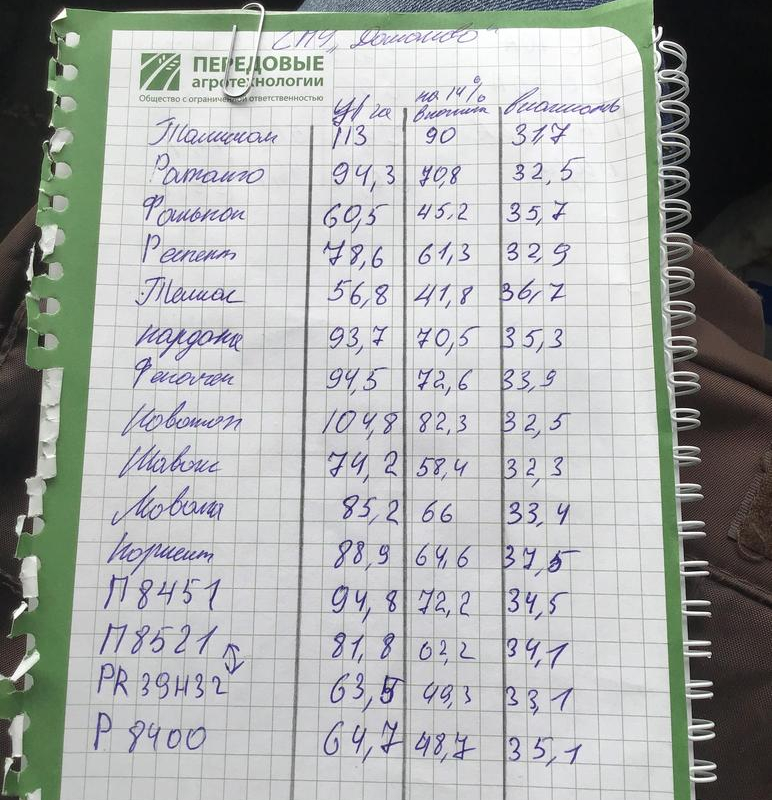 СПУ „Домоново"
ПЕРЕДОВЫЕ
агротехнологии
Общество с ограниченной ответственностью
Ц/га на 14% влажн влажность
113 90 31,7
94,3 70,8 32,5
Фалькон 60,5 45,2 35,7
Респект 78,6 61,3 32,9
56,8 41,8 36,7
93,7 70,5 35,3
94,5 72,6 33,9
104,8 82,3 32,5
74,2 58,4 32,3
85,2 66 33,4
88,9 64,6 37,5
П8451 94,8 72,2 34,5
П8521 81,8 62,2 34,1
PR39H32 63,5 49,3 33,1
P 8400 64,7 48,7 35,1